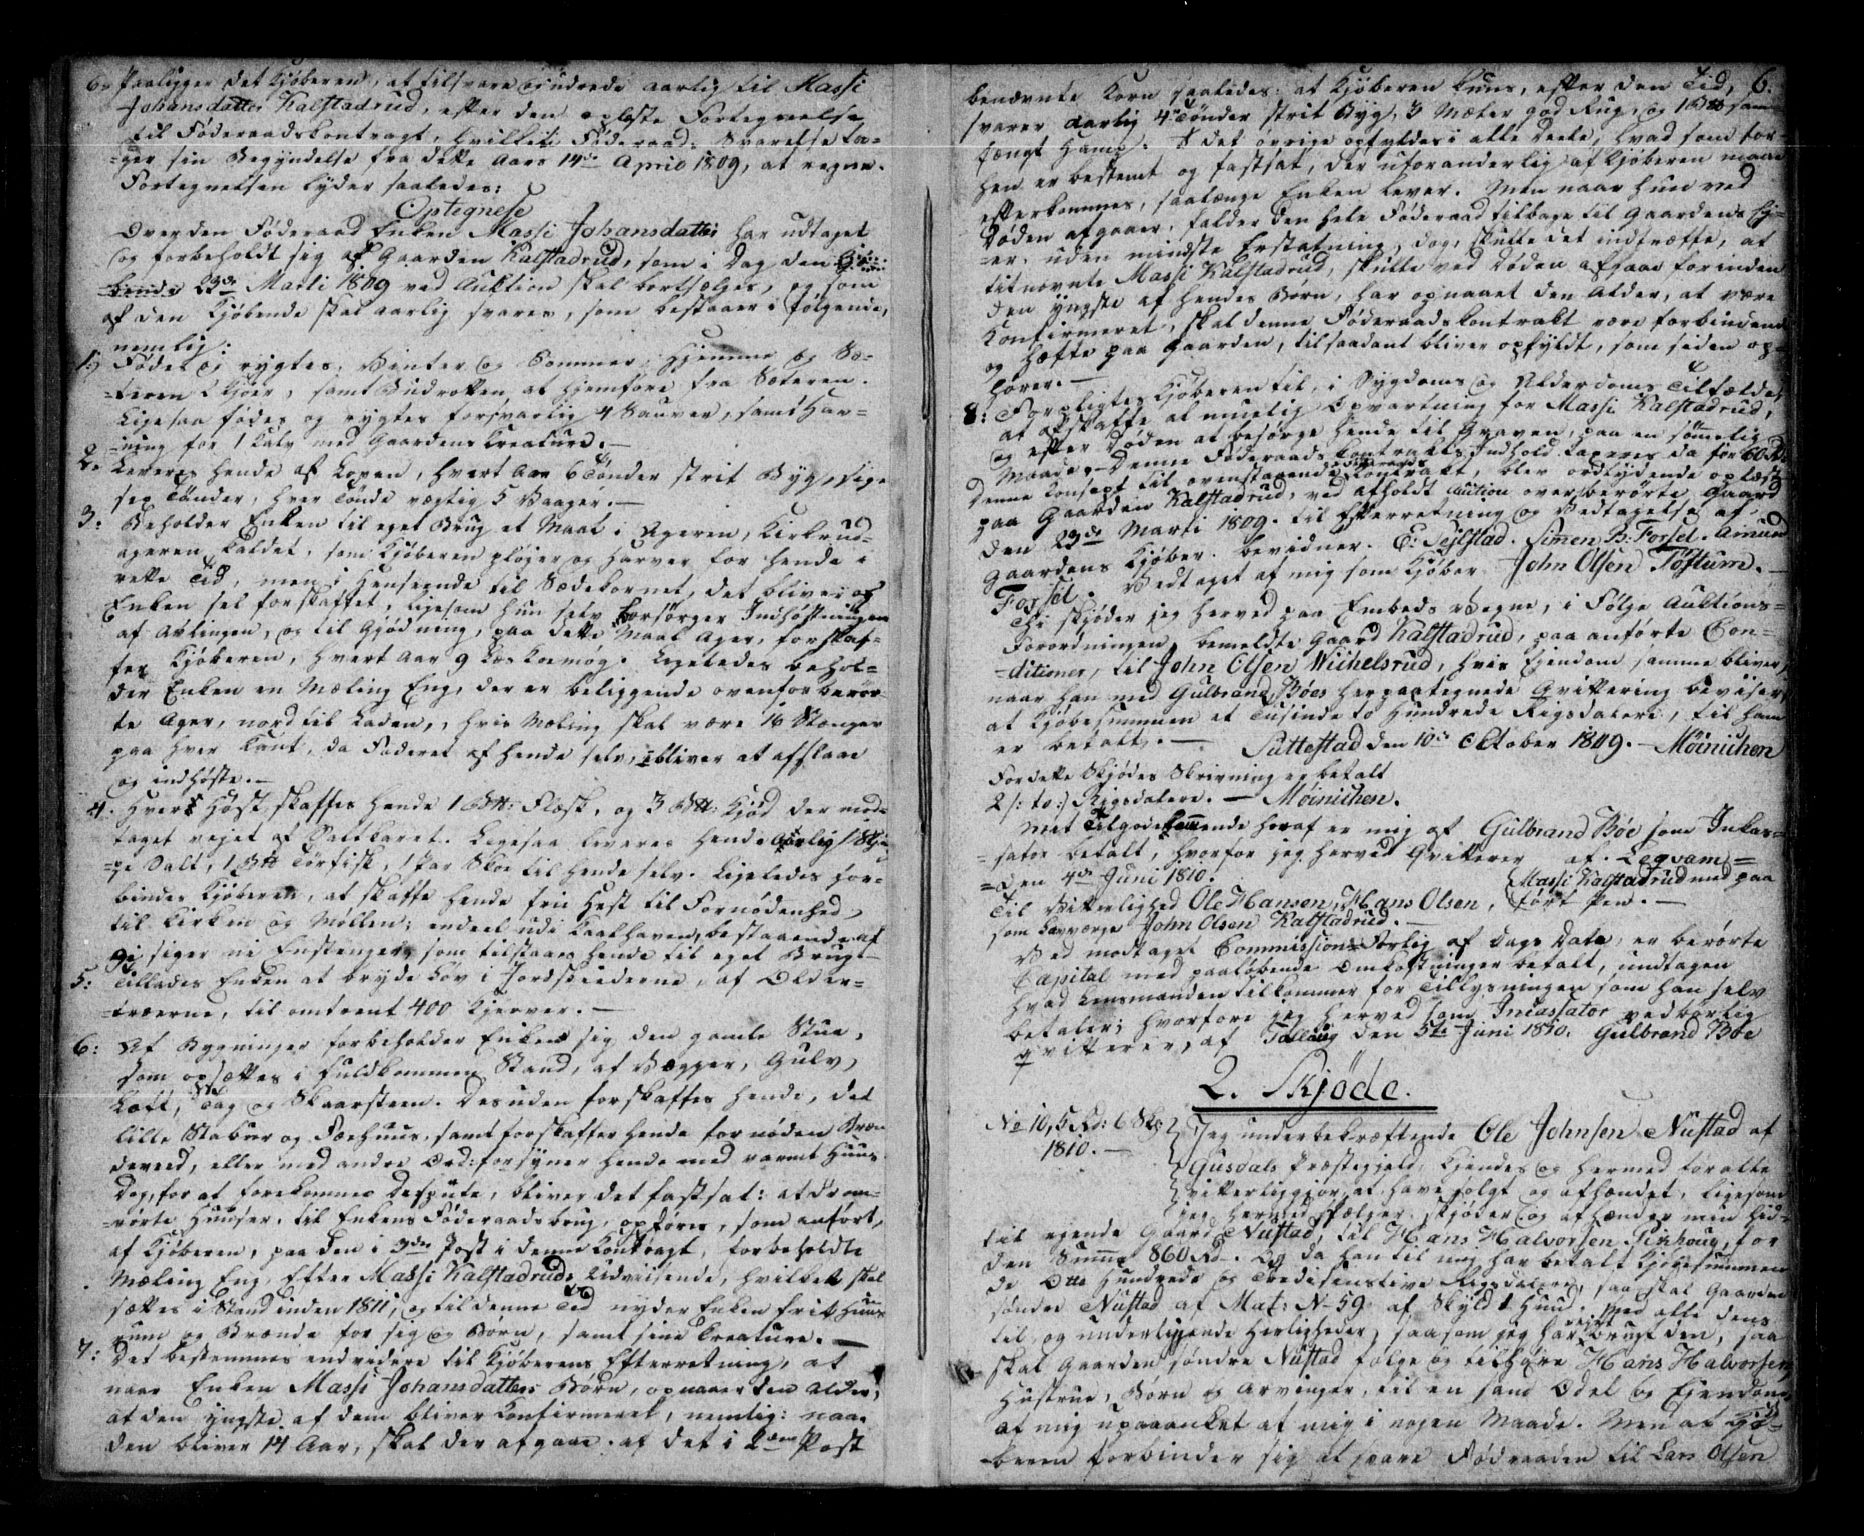 6, Paaligger det Kjøberen, at tilsvare Gjndrede aarlig til Massi
Johansdatter Kalstadrud, efter den oplæste Fortegnelse
til Føderaadskontragt, hvilket Føderaads Svarelse ta-
-ger sin Begyndelse fra dette Aars 14de April 1809, at regne.
Fortegnelsen lyder saaledes:
Optegnelse
Over den Føderaad Enken Massi Johansdatter har udtaget
og forbeholdt sig af Gaarden Kalstadrud, som i Dag den
23de Marti 1809 ved Auktion skal bortsælges, og som
af den Kjøbende skal aarlig svares, som bestaaer i følgende,
nemlig:
1:) Fødes og rygtes, Vinter og Sommer, hjemme og Sæ-
-teren 2 Kjøer, samt Budrotten at hjemføre fra Sæteren.
Ligesaa fødes og rygtes forsvarlig 4 Sauver, samt Hav-
-ning for 1 Kalv med Gaardens Kreature.—
2. Leveres hende af Loven, hvert Aar 6 Tønder strit Byg, sige
sex Tønder, hver Tønde vægtig 5 Vaager.—
3: Beholder Enken til eget Brug et Maal i Ageren, Kirkrud-
ageren kaldet, som Kjøberen pløjer og harver for hende i
rette Tid, men i Henseende til Sædekornet, det bliver af
Enken sel forskaffet, ligesom hun selv besørger Indhøstningen
af Avlingen, og til Gjødning, paa dette Maal Ager, forskaf-
fer Kjøberen, hvert Aar 9 Læs Kamøg. Ligeledes behol-
der Enken en Mæling Eng, der er beliggende ovenfor berør-
te Ager, nord til Laden, hvis Mæling skal være 16 Stænger
paa hver Kant, da Foderet af hende selv, bliver at afslaae
og indhøste.—
4. Hver Høst skaffes hende 1 B℔: Flæsk, og 3 B℔ Kjød der mod-
taget vejet af Saltkaret. Ligesaa leveres hende aarlig 1 Skjæ-
-pe Salt, 1 B℔ Tørfisk, 1 Par Skoe til hende selv. Ligeledes for-
bindes Kjøberen, at skaffe hende frie Hest til Fornødenhed
til Kirken og Møllen; endeel udi Kaalhaven, bestaaende af
9, siger ni Engstenger, som tilstaaes hende til eget Brug—
5: Tillades Enken at bryde Løv i Jordskiederne, af Older-
-træerne, til omtrent 400 Kjerver.—
6: Af Bygninger forbeholder Enken sig den gamle Stue,
som opsættes i fuldkommen Stand, af Vægger, Gulv,
Loft, Tag og Skaarsteen. Desuden forskaffes hende, det
lille Stabur og Fæehuus, samt forskaffer hende fornøden Bræn-
deveed, eller med andre Ord: forsyner hende med varmt Huus.
Dog, for at forekomme Despüte, bliver det fastsat: at de om-
-rørte Huuser, til Enkens Føderaadsbrug, opføres, som anført,
af Kjøberen, paa den i 3die Post i denne Kontragt, forbeholdte
Mæling Eng, Efter Massi Kalstadruds Udviisende, hvilket skal
sættes i Stand inden 1811, og til denne Tid nyder Enken frit Huus-
rum og Brænde for sig og Børn, samt sine Creature.—
7: Det bestemmes end videre til Kjøberens Efterretning, at
naar Enken Massi Johansdatters Børn, opnaaer den Alder,
at den yngste af dem bliver konfirmeret, nemlig: naar
den bliver 14 Aar, skal der afgaae af det i 2den Post
6.
benævnte Korn saaledes: at Kjøberen kuns, efter den Tid,
svarer aarlig 4 Tønder strit Byg, 3 Mæter god Rug, og 1 B℔ sam-
fængt Hamp. I det øvrige opfyldes i alle Deele, hvad som for-
hen er bestemt og fastsat, der uforanderlig af Kjøberen maae
efterkommes, saalænge Enken lever. Men naar hun ved
Døden afgaaer, falder den hele Føderaad tilbage til Gaardens Ej-
-er, uden mindste Erstatning, dog, skulle det indtræffe, at
titnevnte Massi Kalstadrud, skulle ved Døden afgaae forinden
den yngste af hendes Børn, har opnaaet den Alder, at være
Konfirmeret, skal denne Føderaads Kontrakt være forbindende
og hæfte paa Gaarden, til saadant bliver opfyldt, som siden op-
hører.—
8: Forpligtes Kjøberen til, i Sygdoms og Alderdoms Tilfælde,
at afskaffe al muelig Opvartning for Massi Kalstadrud,
og efter Døden at besørge hende til Graven, paa en sömelig
Maade.— Denne Føderaads Kontrakts Indhold taxeres da for 60 Rd
Denne Konsept til ovenstaaende Føderaads Kontrakt, blev ordlydende oplæst
paa Gaarden Kalstadrud, ved afholdt Auction over berørte Gaard
den 23de Marti 1809. til Efterretning og Vedtagelse af
Gaardens Kjøber. bevidner. E: Sejlstad. Simen B: Forsel. Amund
Forsel. Vedtaget af mig som Kjøber John Olsen Töstum.—
Thi skjøder jeg herved paa Embeds Vegne, i Følge Auktions-
Forordningen, bemeldte Gaard Kalstadrud, paa anførte Con-
-ditioner, til John Olsen Wichelsrud, hvis Ejendom samme bliver,
naar han med Gulbrand Böes herpaategnede Qvittering beviser,
at Kjøbesummen et Tusinde to Hundrede Rigsdalere, til ham
er betalt.— Sattestad den 10de October 1809.— Möinichen
For dette Skjødes Skrivning er betalt
2 /: to :/ Rigsdalere.— Möinichen.
Mit Tilgodekommende heraf er mig af Gulbrand Böe som Inkas-
-sator betalt, hvorfor jeg herved Qvitterer af. Leqvam-
-den 4de Juni 1810. Massi Kalstadrud med paa
Til Vitterlighed Ole Hansen, Hans Olsen, ført Pen.—
som Lavværge John Olsen Kalstadrud.—
Ved modtaget Commissions Forlig af Dags Dato, er berørte
Capital med paaløbende Omkostninger betalt, undtagen
hvad Lensmanden tilkommer for Tillysningen som han selv
betaler; hvorfore jeg herved som Incassator vedbørlig
qvitterer, af Tollaug den 5te Juni 1810. Gulbrand Böe
2. Skjøde.
No 10, 5 Rd: 6 Sk
1810.—
Jeg underbekræftende Ole Johnsen Nustad af
Gusdals Præstegjeld, Kjendes og hermed for alle
vitterliggjør, at have solgt og afhændet, ligesom
jeg hermed sælger, skjøder og afhænder min hid-
til egende Gaard Nustad, til Hans Halvorsen Sixhoug, for
den Summa 860 Rd. Og da han til mig har betalt Kjøbesummen
de Otte Hundrede og Tredisenstive Rigsdalere, saa skal Gaarden
søndre Nustad af Mat: No 59 af Skyld 1 Huud. Med alle dens
til og underliggende Herligheder, saasom jeg har ejet brugt den, saa
skal Gaarden söndre Nustad følge og tilhøre Hans Halvorsen
Hustrue, Børn og Arvinger, til en sand Odel og Ejendom
at mig upaaanket af mig i nogen Maade. Men at Kjø-
-beren forbinder sig at svare Fødraaden til Lars Olsen